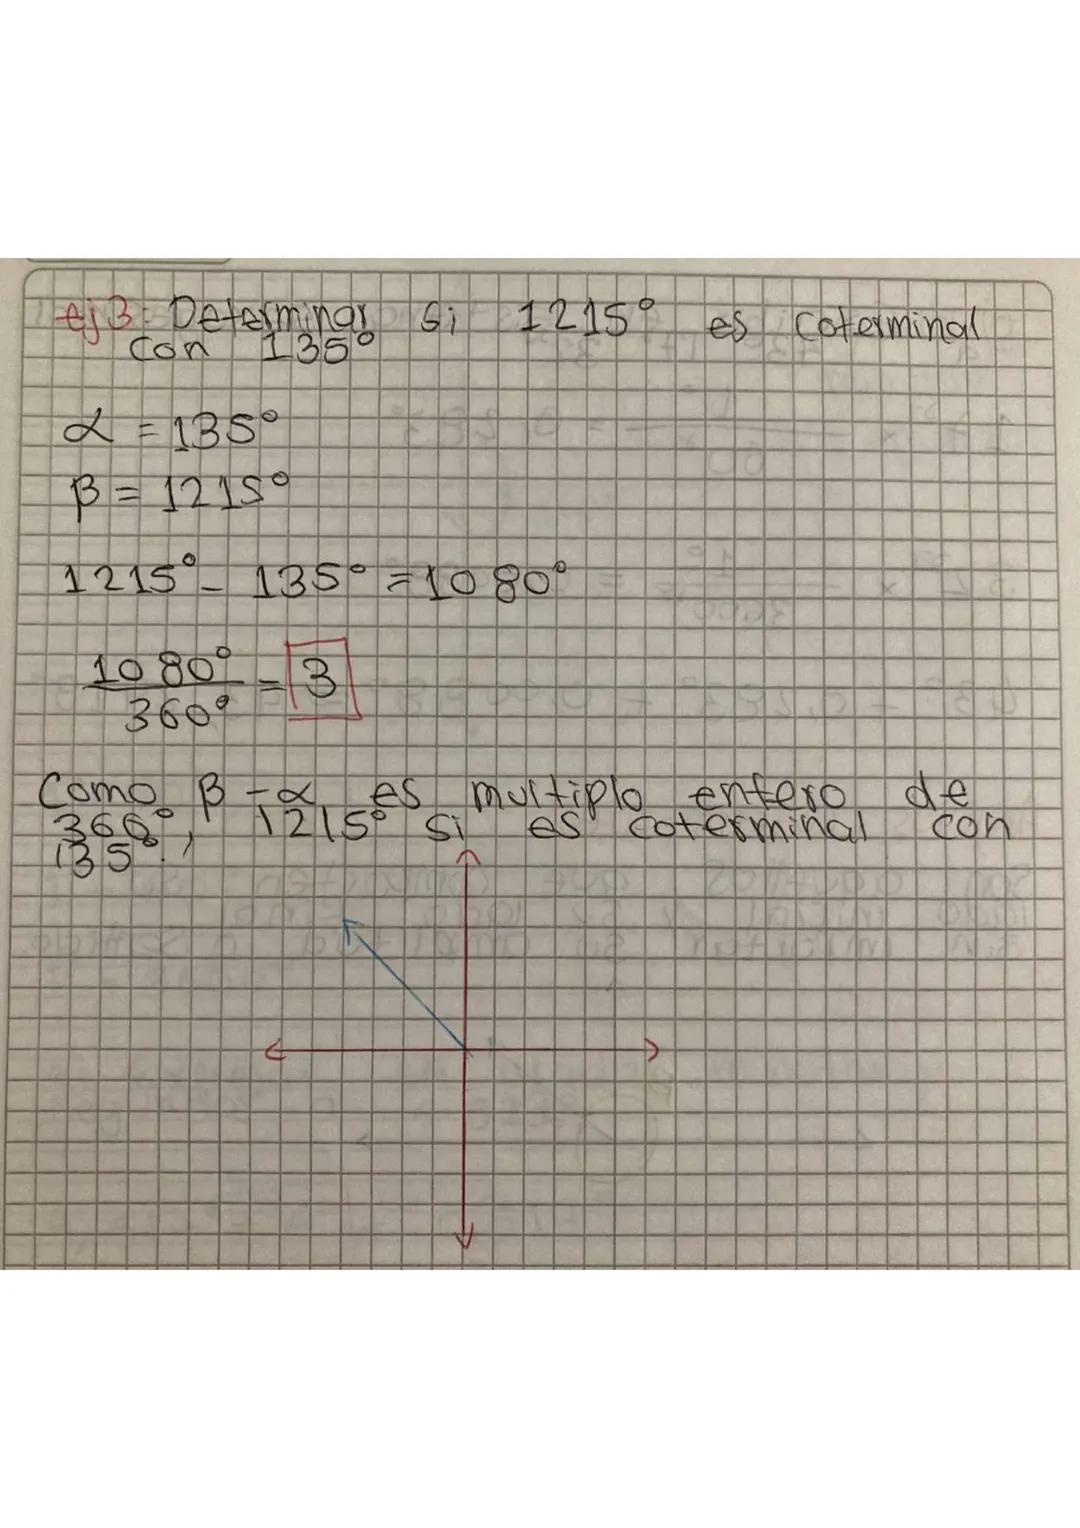 ej 3: Determinar si 1215° es coterminal
con 135°
α = 135°
β = 1215°
1215° - 135° = 1080°
1080°
360°
= 3
Como β - α es multiplo entero de
360°, 1215° si es coterminal con
135°.